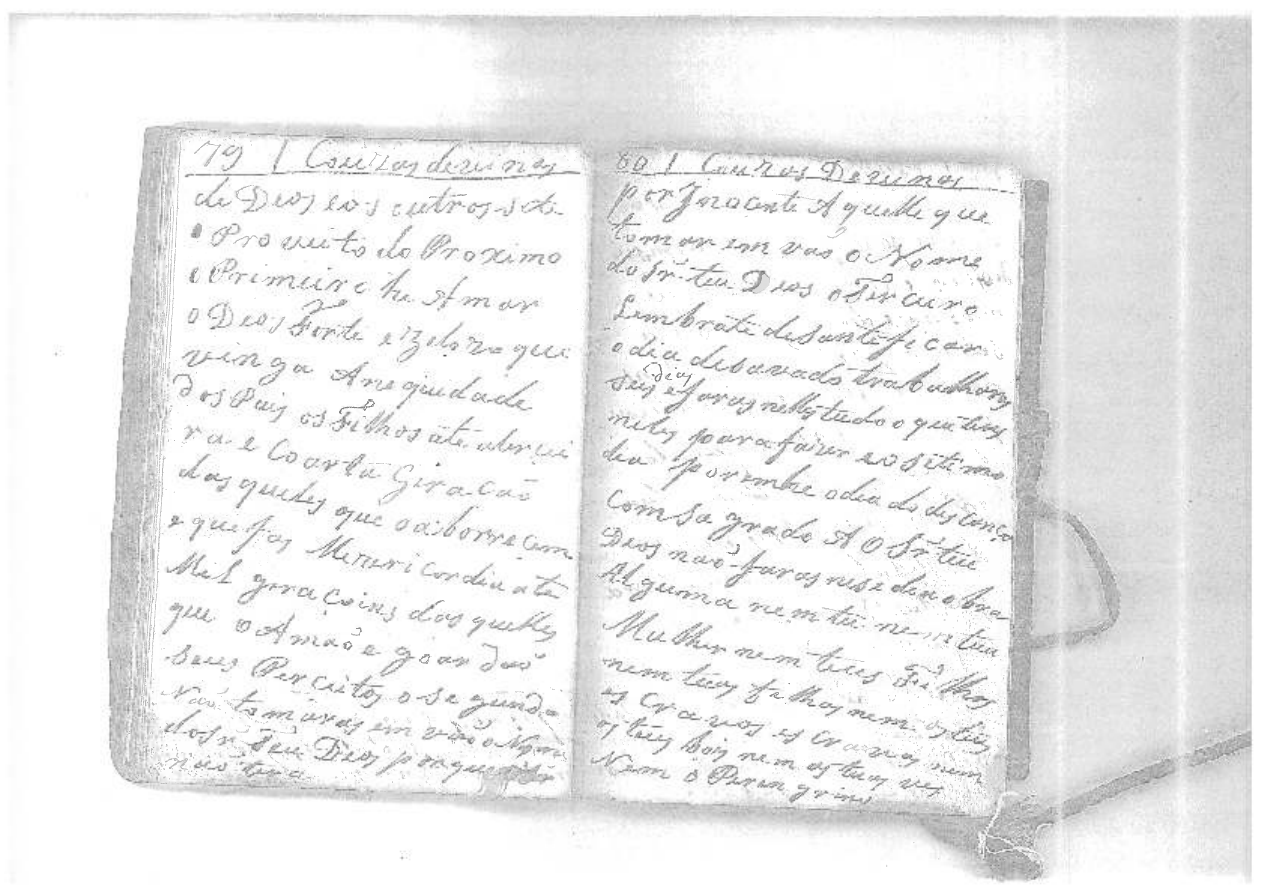 79 | Couzas devinas
de Deos e os outros sete
Proveito do Proximo
o Primeiro he Amar
o Deos Forte e Zelozo que
vinga A neguidade
dos Pais os Filhos ate a tercei
ra e Coarta Giracaõ
das quelles que o a borrecem
e que fas Mizericordia ate
Mil giracoins das quelles
que o Amaõ e goardaõ
seus Perceitos o segundo
Naõ tomaras em vaõ o Nome
do sr seu Deos porque
naõ tera
80 | Couzas Devinas
por Jnocente A quelle que
tomar em vaõ o Nome
do Sr teu Deos o Terceiro
Lembrate de santeficar
o dia de savado trabalharas
dias
seis e faras nelles tudo o que tens
neles para fazer e o sitimo
dia porem he o dia do discanço
Com sa grado A O Sr teu
Deos naõ faras nese dia obra
Alguma nem tu nem tua
Mulher nem teus Filhos
nem tuas filhas nem os teus
es Cravos es cravas nem
os teus bois nem as tuas
Nem o Peren grino